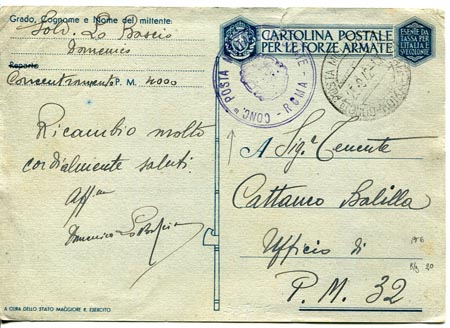 Grado, Cognome e Nome del mittente
Sold. Lo Bascio
Domenico
Reparto
Concentramento P. M. 4000
Ricambio molto
cordialmente saluti.
Aff.mo
Domenico Lo Bascio
A CURA DELLO STATO MAGGIORE R. ESERCITO
CARTOLINA POSTALE
PER LE FORZE ARMATE
ESENTE DA
TASSA PER
L'ITALIA E
SUE COLONIE
CONC. POSTA M
ROMA
A Sigr. Tenente
Cattaneo Balilla
Ufficio di
P. M. 32